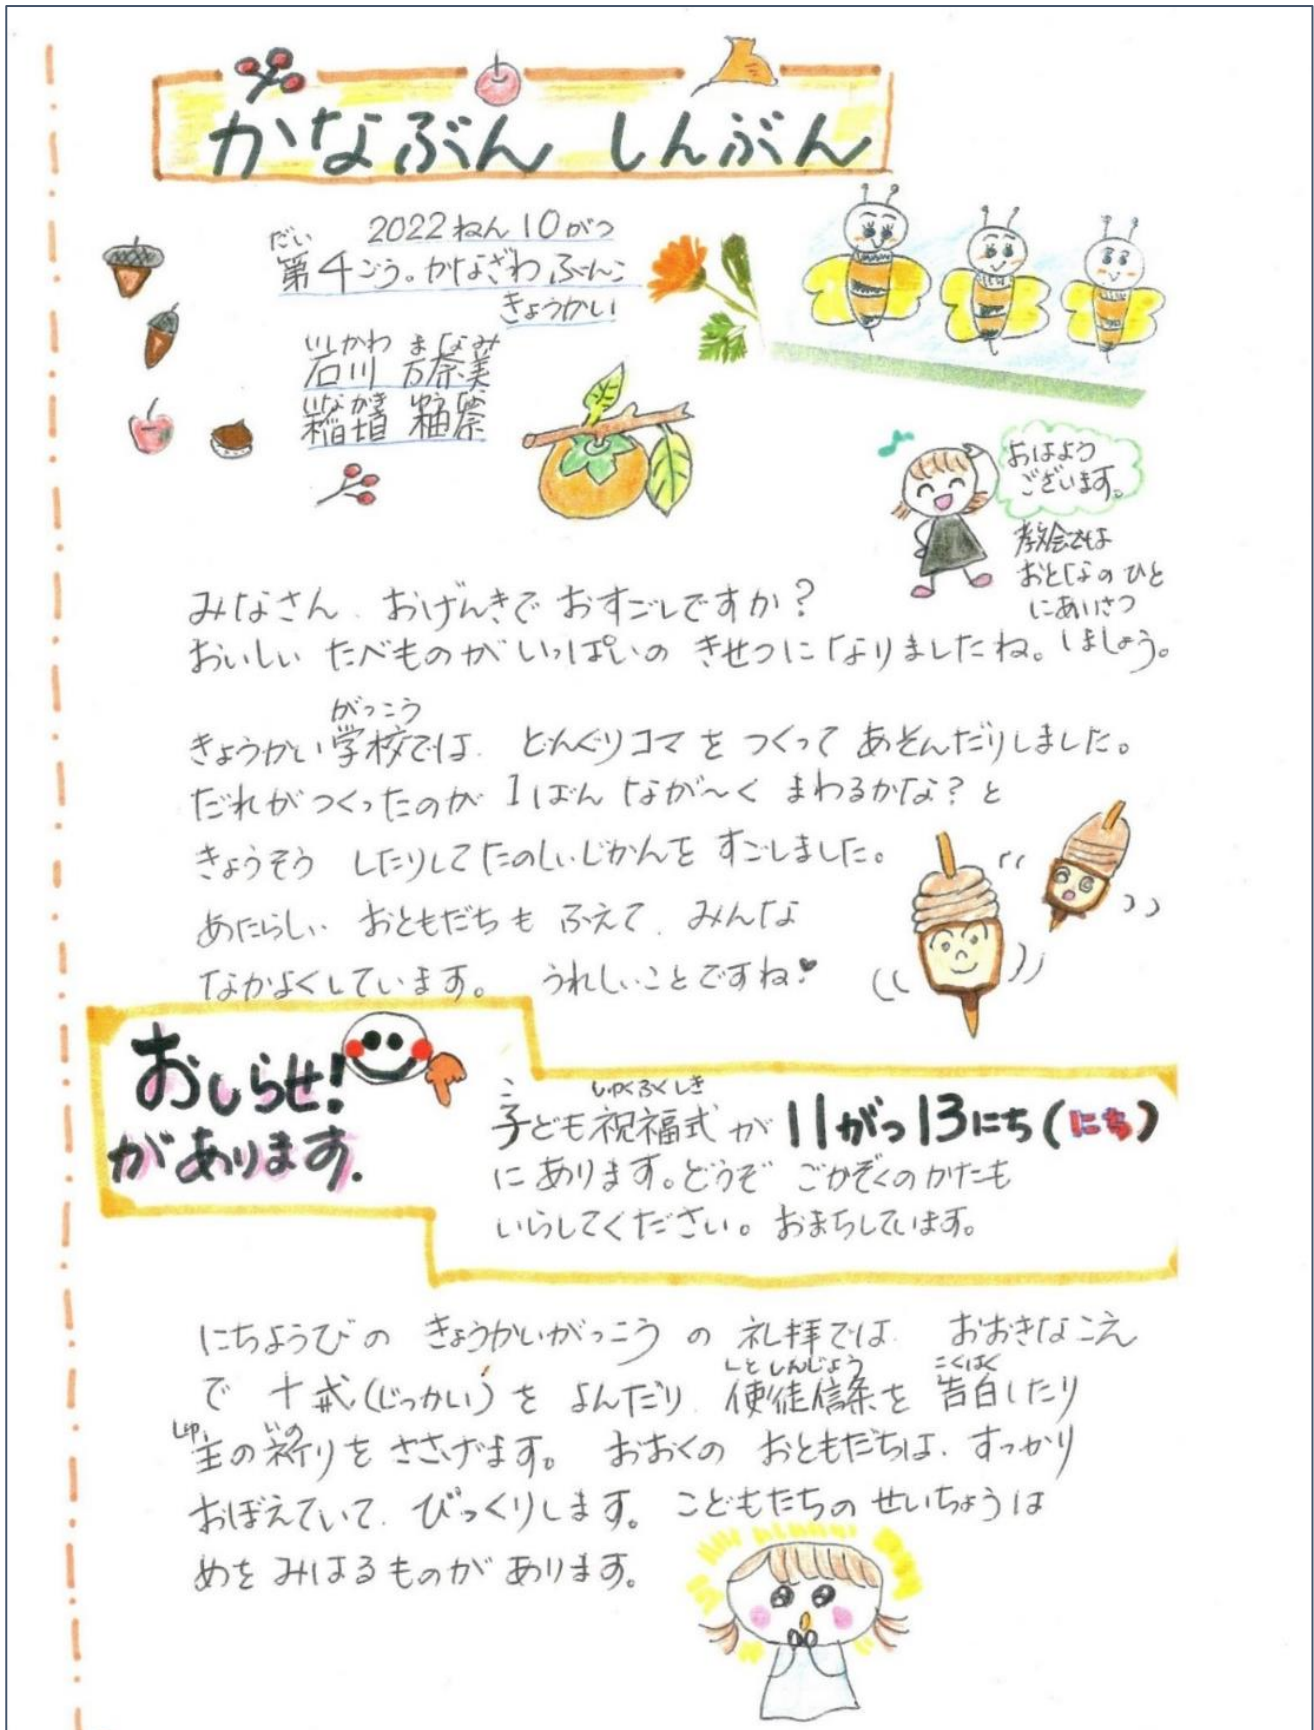 かなぶん しんぶん
2022ねん10がつ
だい
第4ごう。かなざわ ぶんこ
きょうかい
いしかわ まなみ
石川 万奈美
いながき ゆうな
稲垣 柚奈
おはよう
ございます。
教会では
おとなの ひと
にあいさつ
しましょう。
みなさん、おげんきで おすごしですか?
おいしい たべものが いっぱいの きせつに なりましたね。
がっこう
きょうかい学校では、どんぐりコマ を つくって あそんだりしました。
だれが つくったのが 1ばん なが〜く まわるかな? と
きょうそう したりして たのしいじかんを すごしました。
あたらしい おともだちも ふえて、みんな
なかよくしています。 うれしいことですね♥
おしらせ!
があります.
こ しゅくふくしき
子ども祝福式 が 11がつ13にち(にち)
に あります。どうぞ ごかぞくの かたも
いらしてください。おまちしています。
にちようびの きょうかいがっこう の 礼拝では、おおきなこえ
しとしんじょう こくはく
で 十戒(じっかい)を よんだり、使徒信条を 告白したり
しゅ いの
主の祈りを ささげます。 おおくの おともだちは、すっかり
おぼえていて、びっくりします。こどもたちの せいちょうは
めを みはるものが あります。